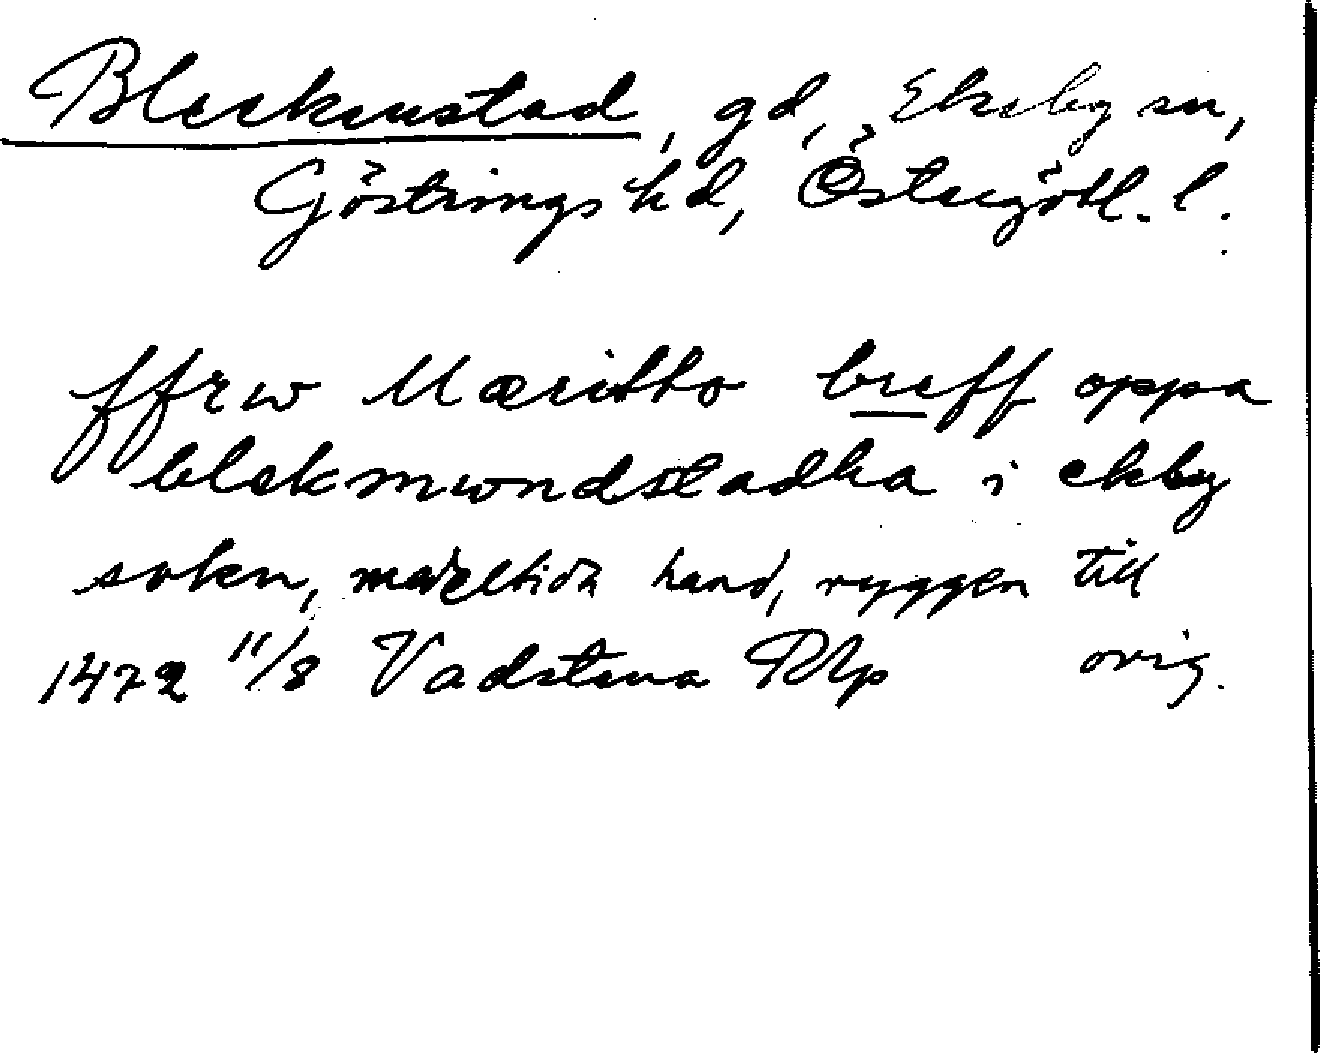 Bleckenstad, gd, Ekeby sn,
Göstrings hd, Östergötl. l.
ffrw Mæritto breff oppa
blekmwndstadha i ekby
sokn, medeltida hand, ryggen till
1472 11/8 Vadstena RAp orig.